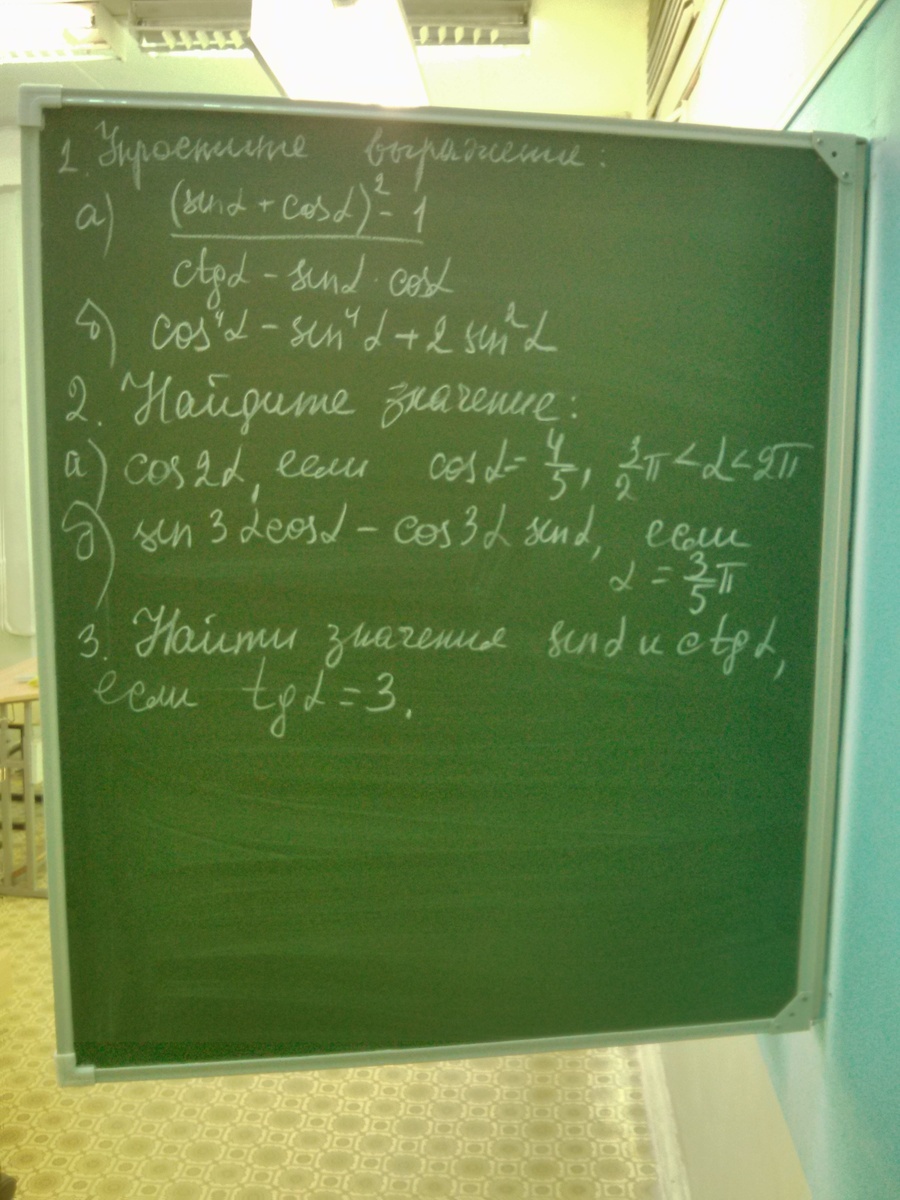 1. Упростите выражение:
а) (sinα + cosα)² - 1
ctgα - sinα · cosα
б) cos⁴α - sin⁴α + 2 sin²α
2. Найдите значение:
а) cos2α, если cosα = 4/5, 3/2 π < α < 2π
б) sin 3αcosα - cos3α sinα, если
α = 3/5 π
3. Найти значения sinα и ctgα,
если tgα = 3.